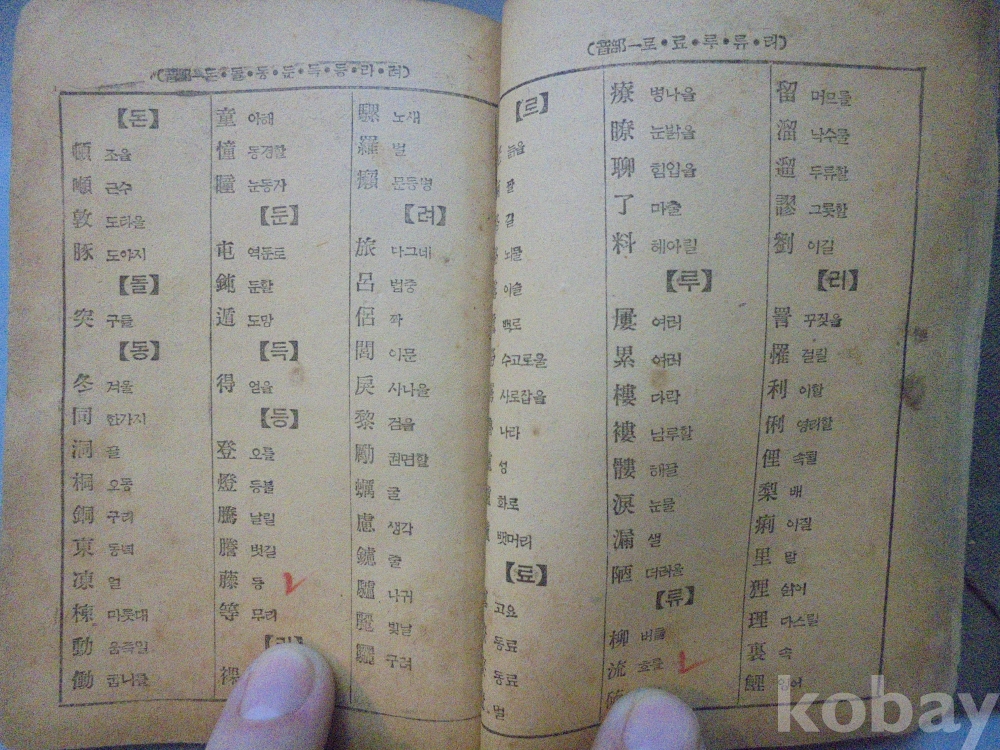 (音部—돈•돌•동•둔•득•등•라•려)
【돈】
頓 조을
噸 근수
敦 도타울
豚 도야지
【돌】
突 구들
【동】
冬 겨울
同 한가지
洞 골
桐 오동
銅 구리
東 동녁
凍 얼
棟 마룻대
動 움즉일
働 굼니를
童 아해
憧 동경할
瞳 눈동자
【둔】
屯 역둔토
鈍 둔할
遁 도망
【득】
得 얻을
【등】
登 오를
燈 등불
騰 날릴
謄 벗길
藤 등
等 무리
騾 노새
羅 벌
癩 문둥병
【려】
旅 나그네
呂 법중
侶 짝
閭 이문
戾 사나울
黎 검을
勵 권면할
蠣 굴
慮 생각
鑢 줄
驢 나귀
麗 빛날
驪 구려
(音部—로•료•루•류•리)
【로】
늙을
길
뇌물
이슬
백로
수고로울
사로잡을
나라
성
화로
뱃머리
【료】
고요
동료
동료
멀
療 병나을
瞭 눈밝을
聊 힘입을
了 마츨
料 헤아릴
【루】
屢 여러
累 여러
樓 다락
褸 남루할
髏 해골
淚 눈물
漏 샐
陋 더러울
【류】
柳 버들
流 흐를
留 머므를
溜 낙수물
遛 두류할
謬 그릇할
劉 이길
【리】
詈 꾸짖을
罹 걸릴
利 이할
俐 영리할
俚 속될
梨 배
痢 이질
里 말
狸 삵이
理 다스릴
裏 속
鯉 잉어
kobay